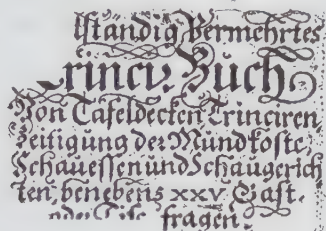 lständig Vermehrtes
Trincir Buch
Von Tafeldecken Trinciren,
Zeitigung der Mundkoste,
Schauessen und Schaugerich
ten, benebens xxv. Gast.
oder Tisc fragen.